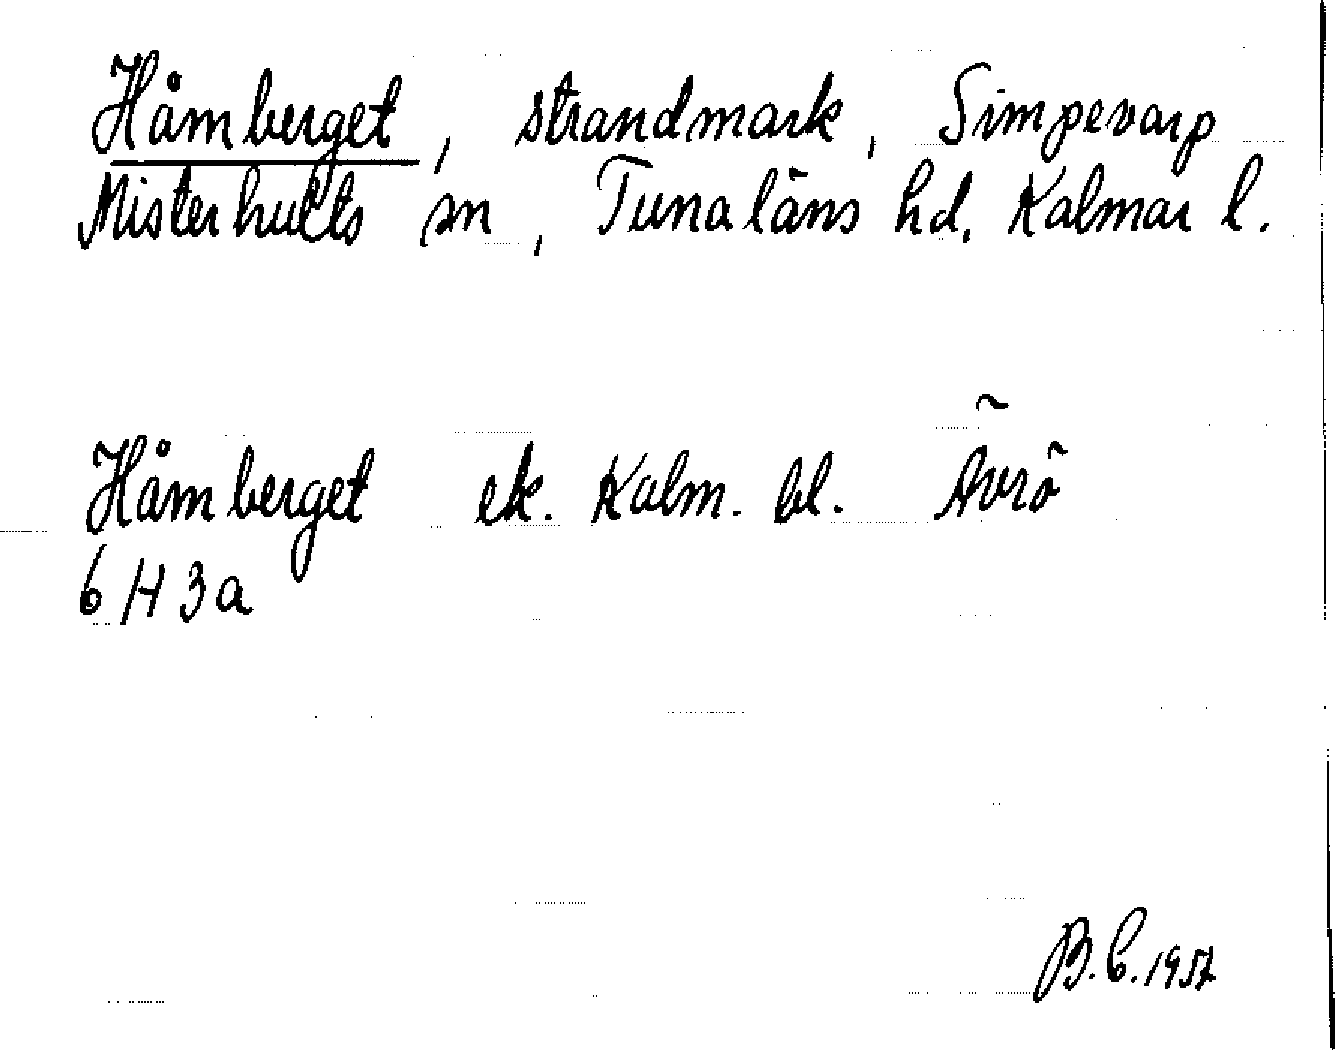 Håmberget, strandmark, Simpevarp
Misterhults sn, Tunaläns hd. Kalmar l.
Håmberget ek. Kalm. bl. Ävrö
6H3a
B.C. 1957